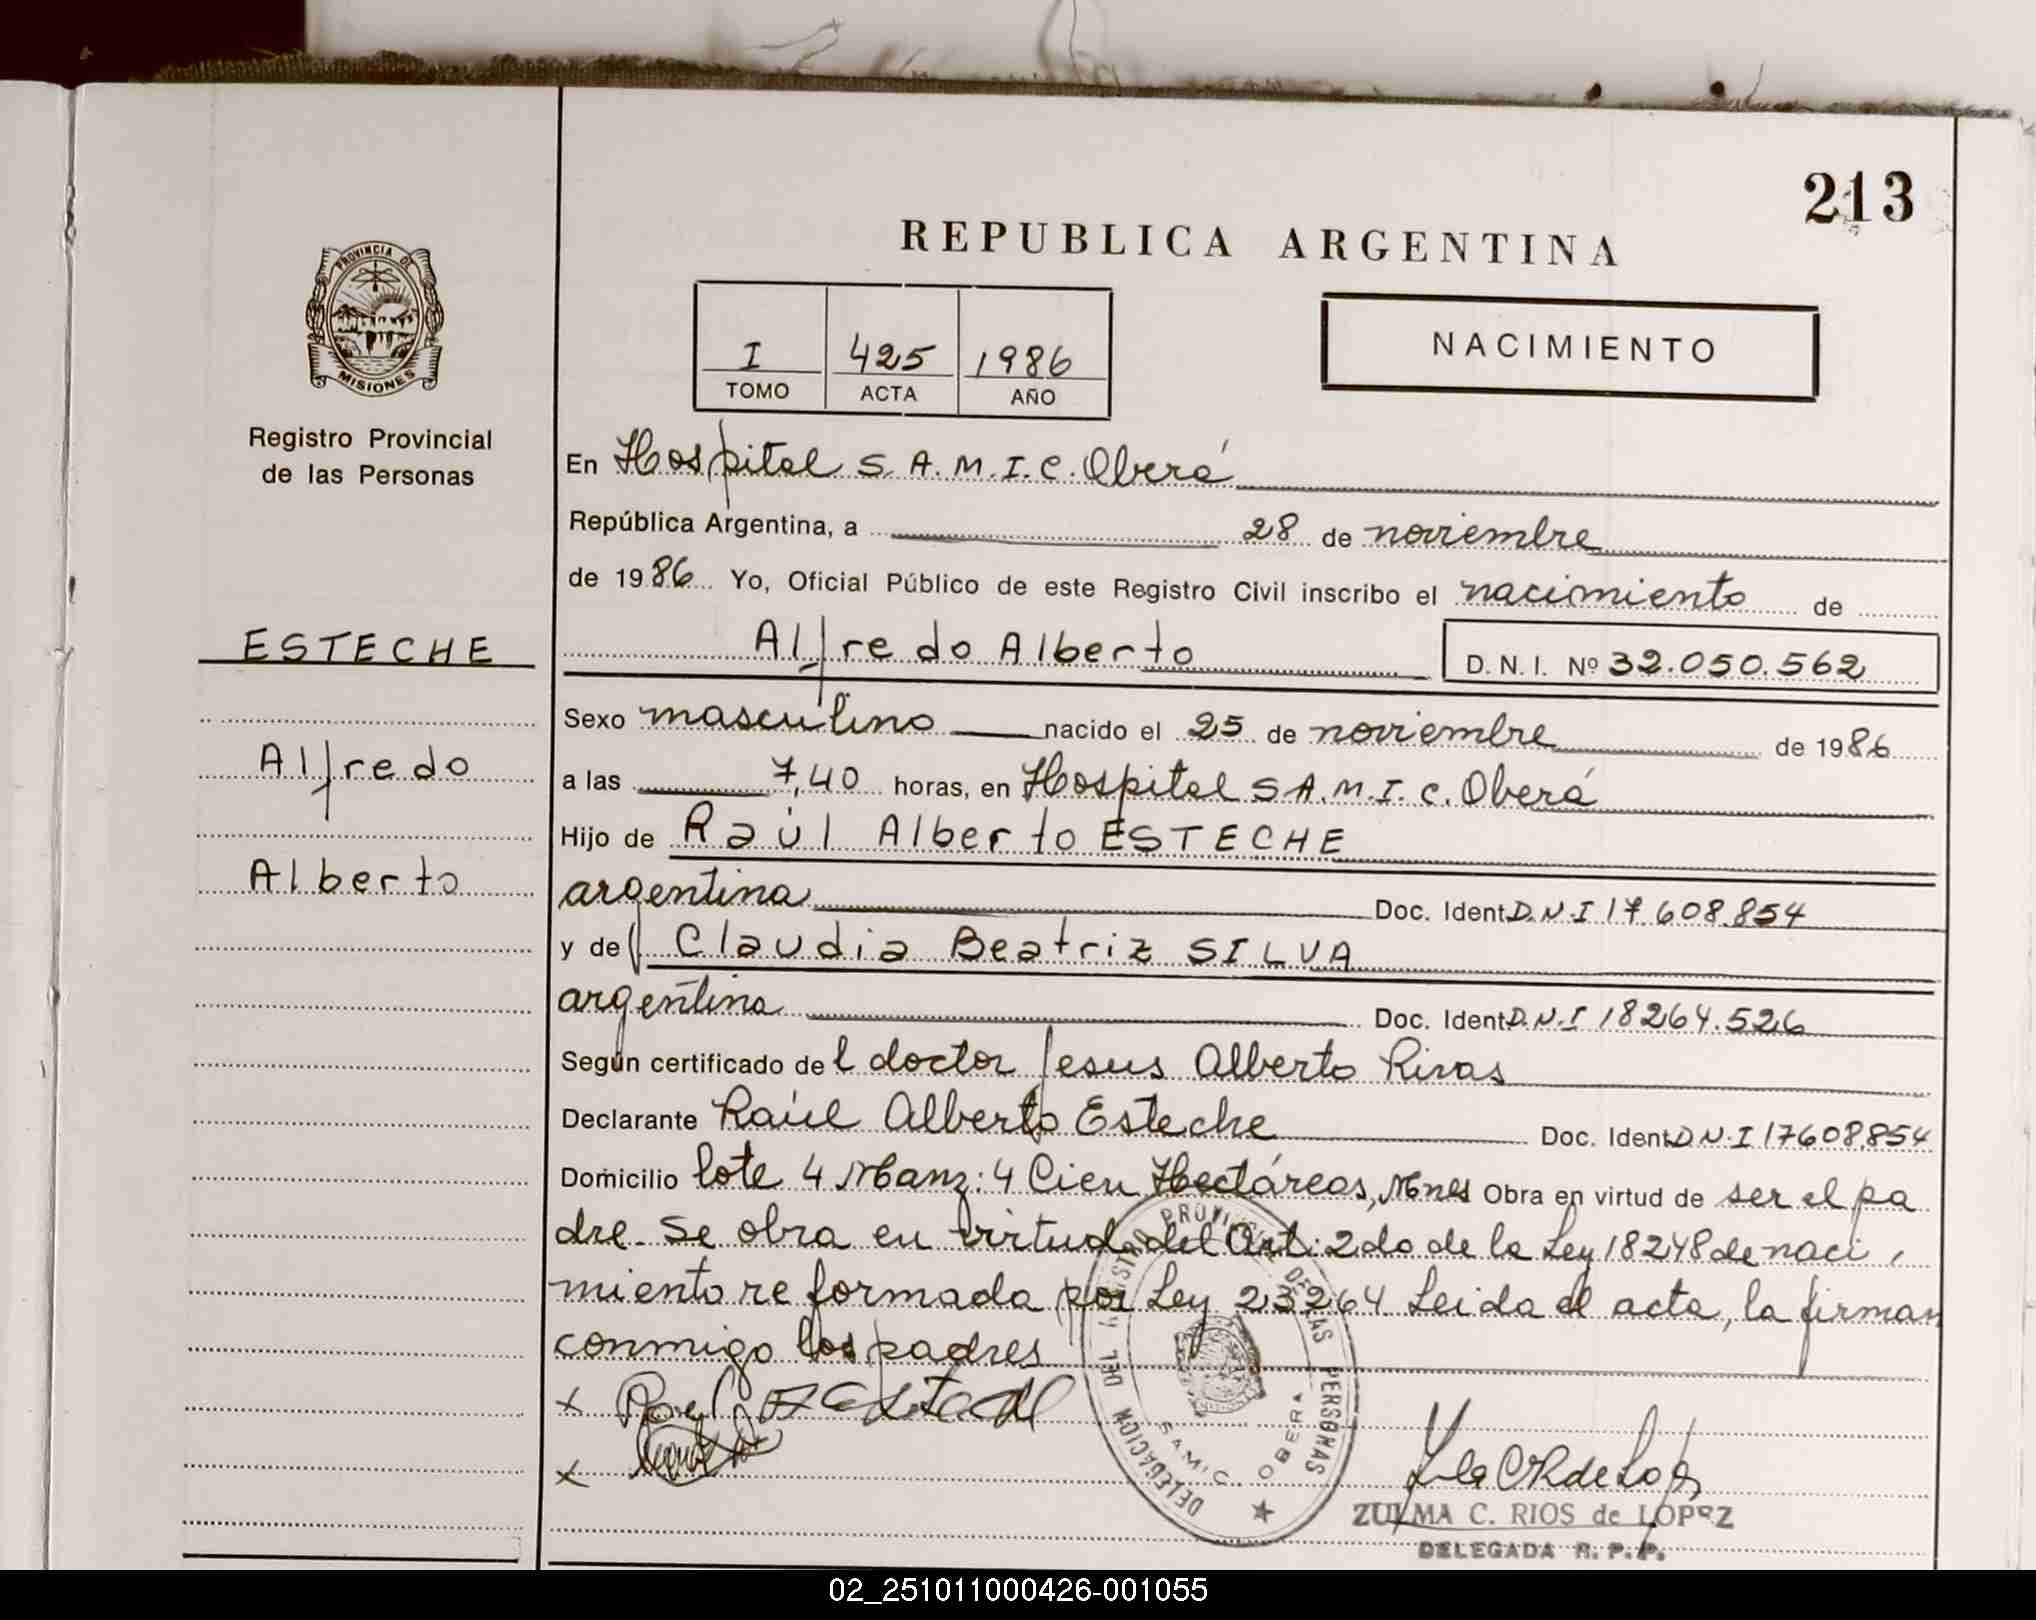 213
REPUBLICA ARGENTINA
PROVINCIA DE
MISIONES
Registro Provincial
de las Personas
I 425 1986
TOMO ACTA AÑO
NACIMIENTO
En Hospital S.A.M.I.C. Oberá
República Argentina, a 28 de noviembre
de 1986 Yo, Oficial Público de este Registro Civil inscribo el nacimiento de
ESTECHE
Alfredo Alberto D.N.I. Nº 32.050.562
Sexo masculino nacido el 25 de noviembre de 1986
Alfredo
a las 7,40 horas, en Hospital S.A.M.I.C. Oberá
Hijo de Raúl Alberto ESTECHE
Alberto
argentina Doc. Ident D.N.I 17.608.854
y de Claudia Beatriz SILVA
argentina Doc. Ident D.N.I 18264.526
Según certificado del doctor Jesus Alberto Rivas
Declarante Raúl Alberto Esteche Doc. Ident D.N.I 17608854
Domicilio lote 4 Manz: 4 Cien Hectáreas, Mnes Obra en virtud de ser el pa
dre. Se obra en virtud del Art: 2do de la Ley 18248 de naci
miento reformada por Ley 23264 Leida el acta, la firman
conmigo los padres
DELEGACION DEL REGISTRO PROVINCIAL DE LAS PERSONAS
SAMIC OBERA
ZULMA C. RIOS de LOPEZ
DELEGADA R. P. P.
02_251011000426-001055